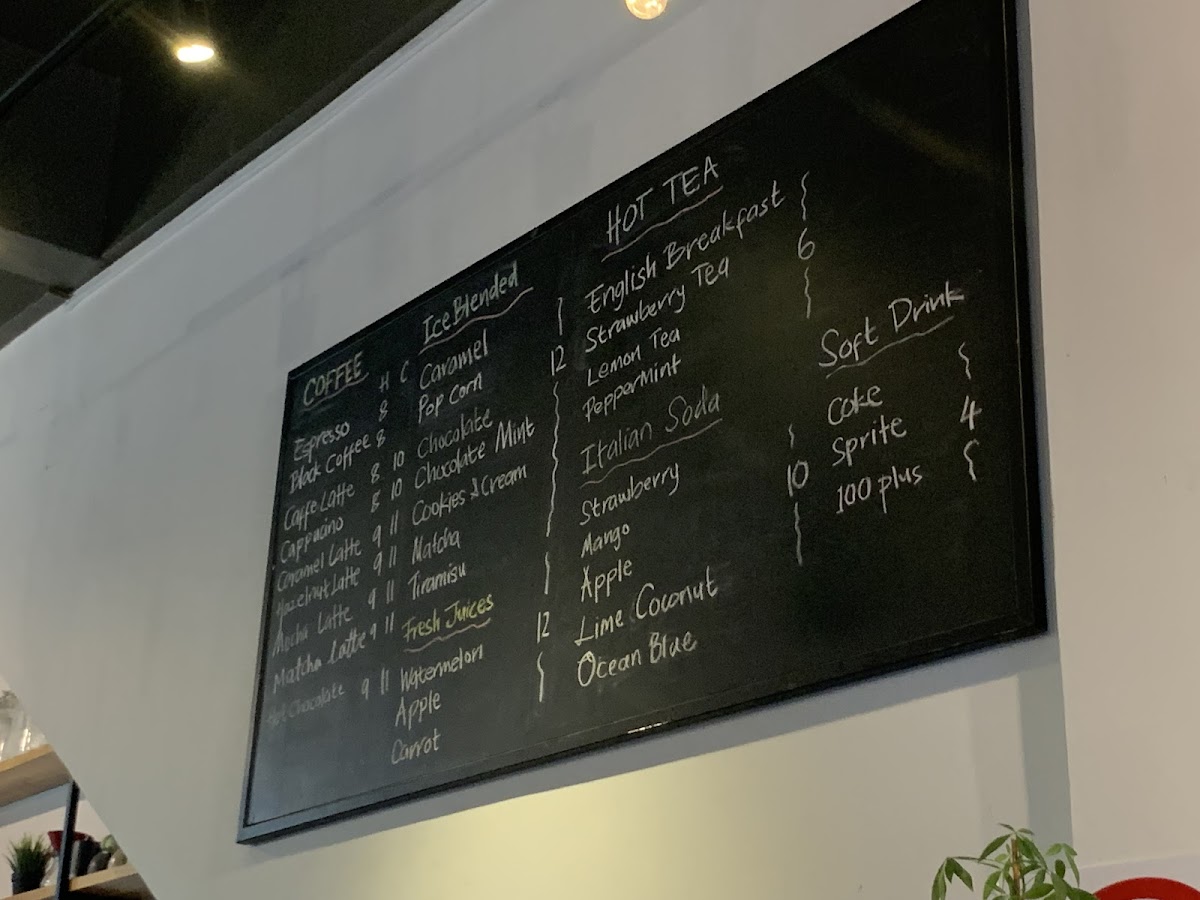 COFFEE H C
Espresso 8
Black Coffee 8
Caffe Latte 8 10
Cappucino 8 10
Caramel Latte 9 11
Hazelnut Latte 9 11
Mocha Latte 9 11
Matcha Latte 9 11
Hot Chocolate 9 11
Ice Blended
Caramel
Pop Corn 12
Chocolate
Chocolate Mint
Cookies & Cream
Matcha
Tiramisu
Fresh Juices
Watermelon 12
Apple
Carrot
HOT TEA
English Breakfast
Strawberry Tea 6
Lemon Tea
Peppermint
Italian Soda
Strawberry 10
Mango
Apple
Lime Coconut
Ocean Blue
Soft Drink
Coke
Sprite 4
100 plus